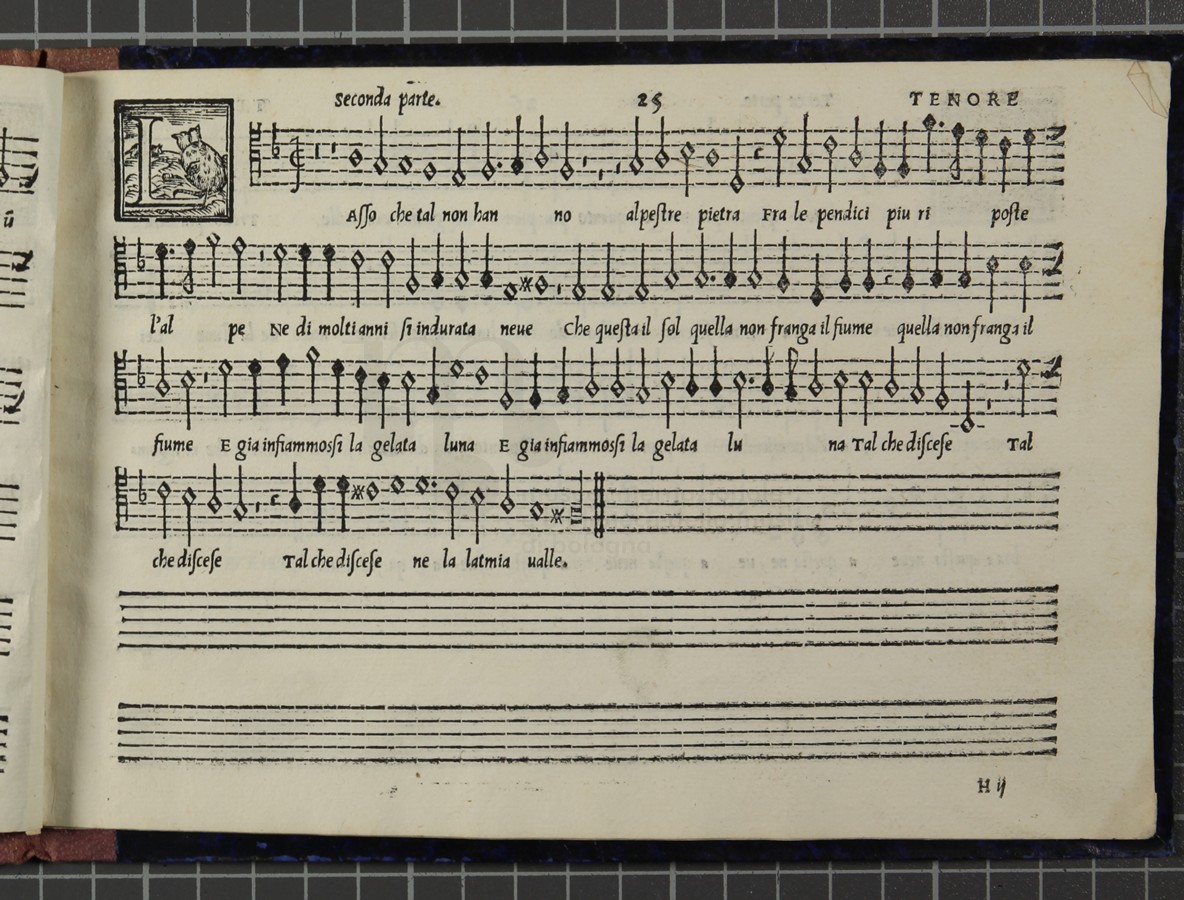 Seconda parte. 25 TENORE
L
Asso che tal non han no alpestre pietra Fra le pendici piu ri poste
l'al pe Ne di molti anni si indurata neue Che questa il sol quella non franga il fiume quella non franga il
fiume E gia infiammossi la gelata luna E gia infiammossi la gelata lu na Tal che discese Tal
che discese Tal che discese ne la latmia ualle.
H ij
ü